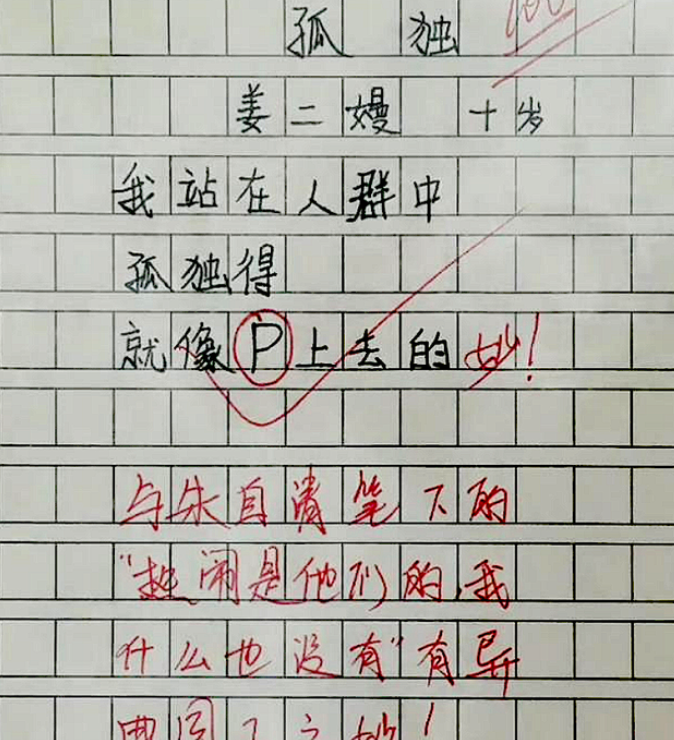 孤独 100
姜二嫚 十岁
我站在人群中
孤独得
就像P上去的 妙！
与朱自清笔下的
“热闹是他们的,我
什么也没有”有异
曲同工之妙！